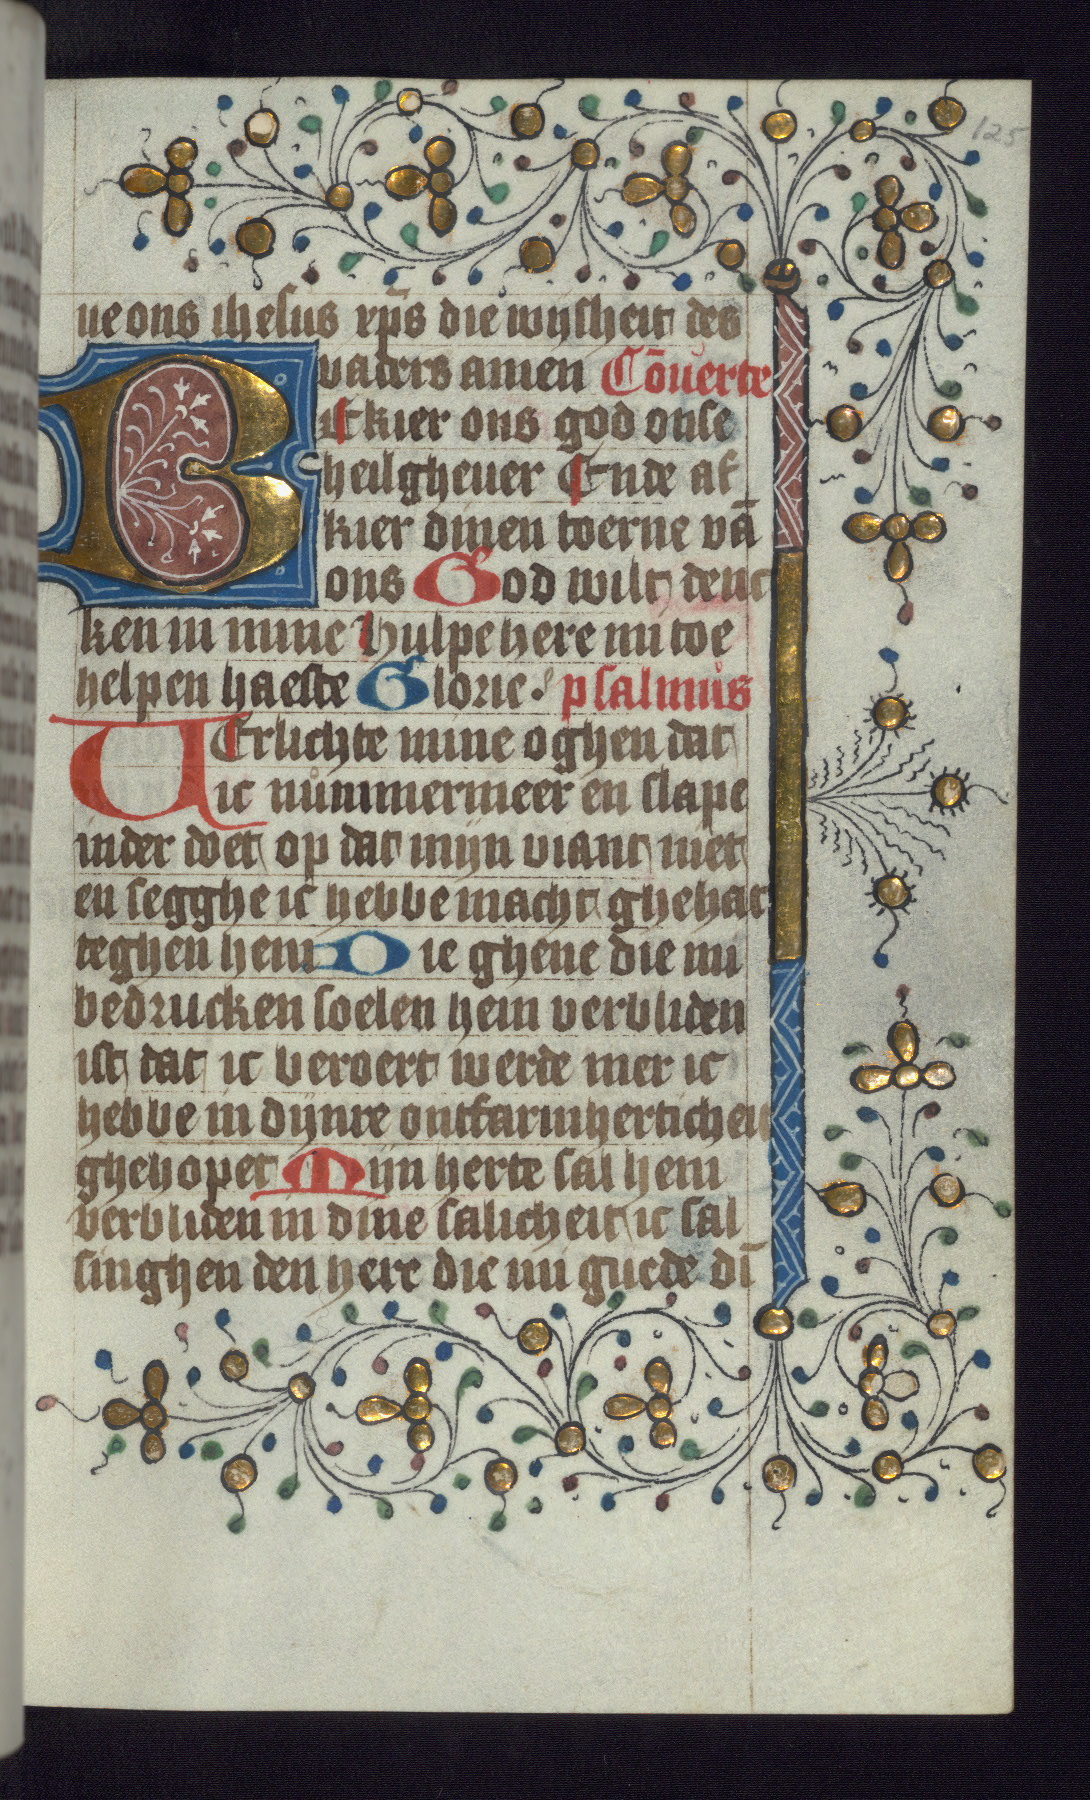 125
ue ons ihesus xp̄s die wijsheit des
vaders amen Cōuerte
BEkier ons god onse
heilgheuer Ende af
kier dinen toerne vā
ons God wilt denc
ken in mine hulpe here mi toe
helpen haeste Glorie psalmus
VErlichte mine oghen dat
ic nūmmermeer en slape
inder doet op dat mijn viant niet
en segghe ic hebbe macht ghehat
teghen hem Die ghene die mi
bedrucken soelen hem verbliden
ist dat ic beroert werde mer ic
hebbe in dijnre ontfarmherticheit
ghehopet Mijn herte sal hem
verbliden in dine salicheit ic sal
singhen den here die mi guede dī